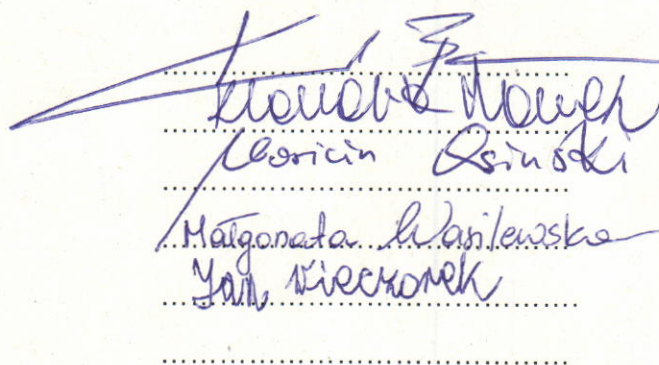 Marcin Osiński
Małgorzata Wasilewska
Jan Wieczorek